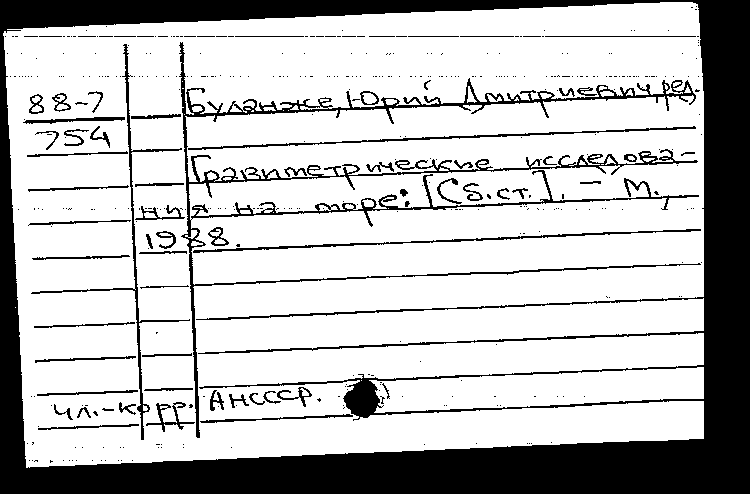 88-7
754
Буланже, Юрий Дмитриевич, ред.
Гравиметрические исследова-
ния на море: [Сб. ст.]. - М.,
1988.
чл.-корр. АНСССР.